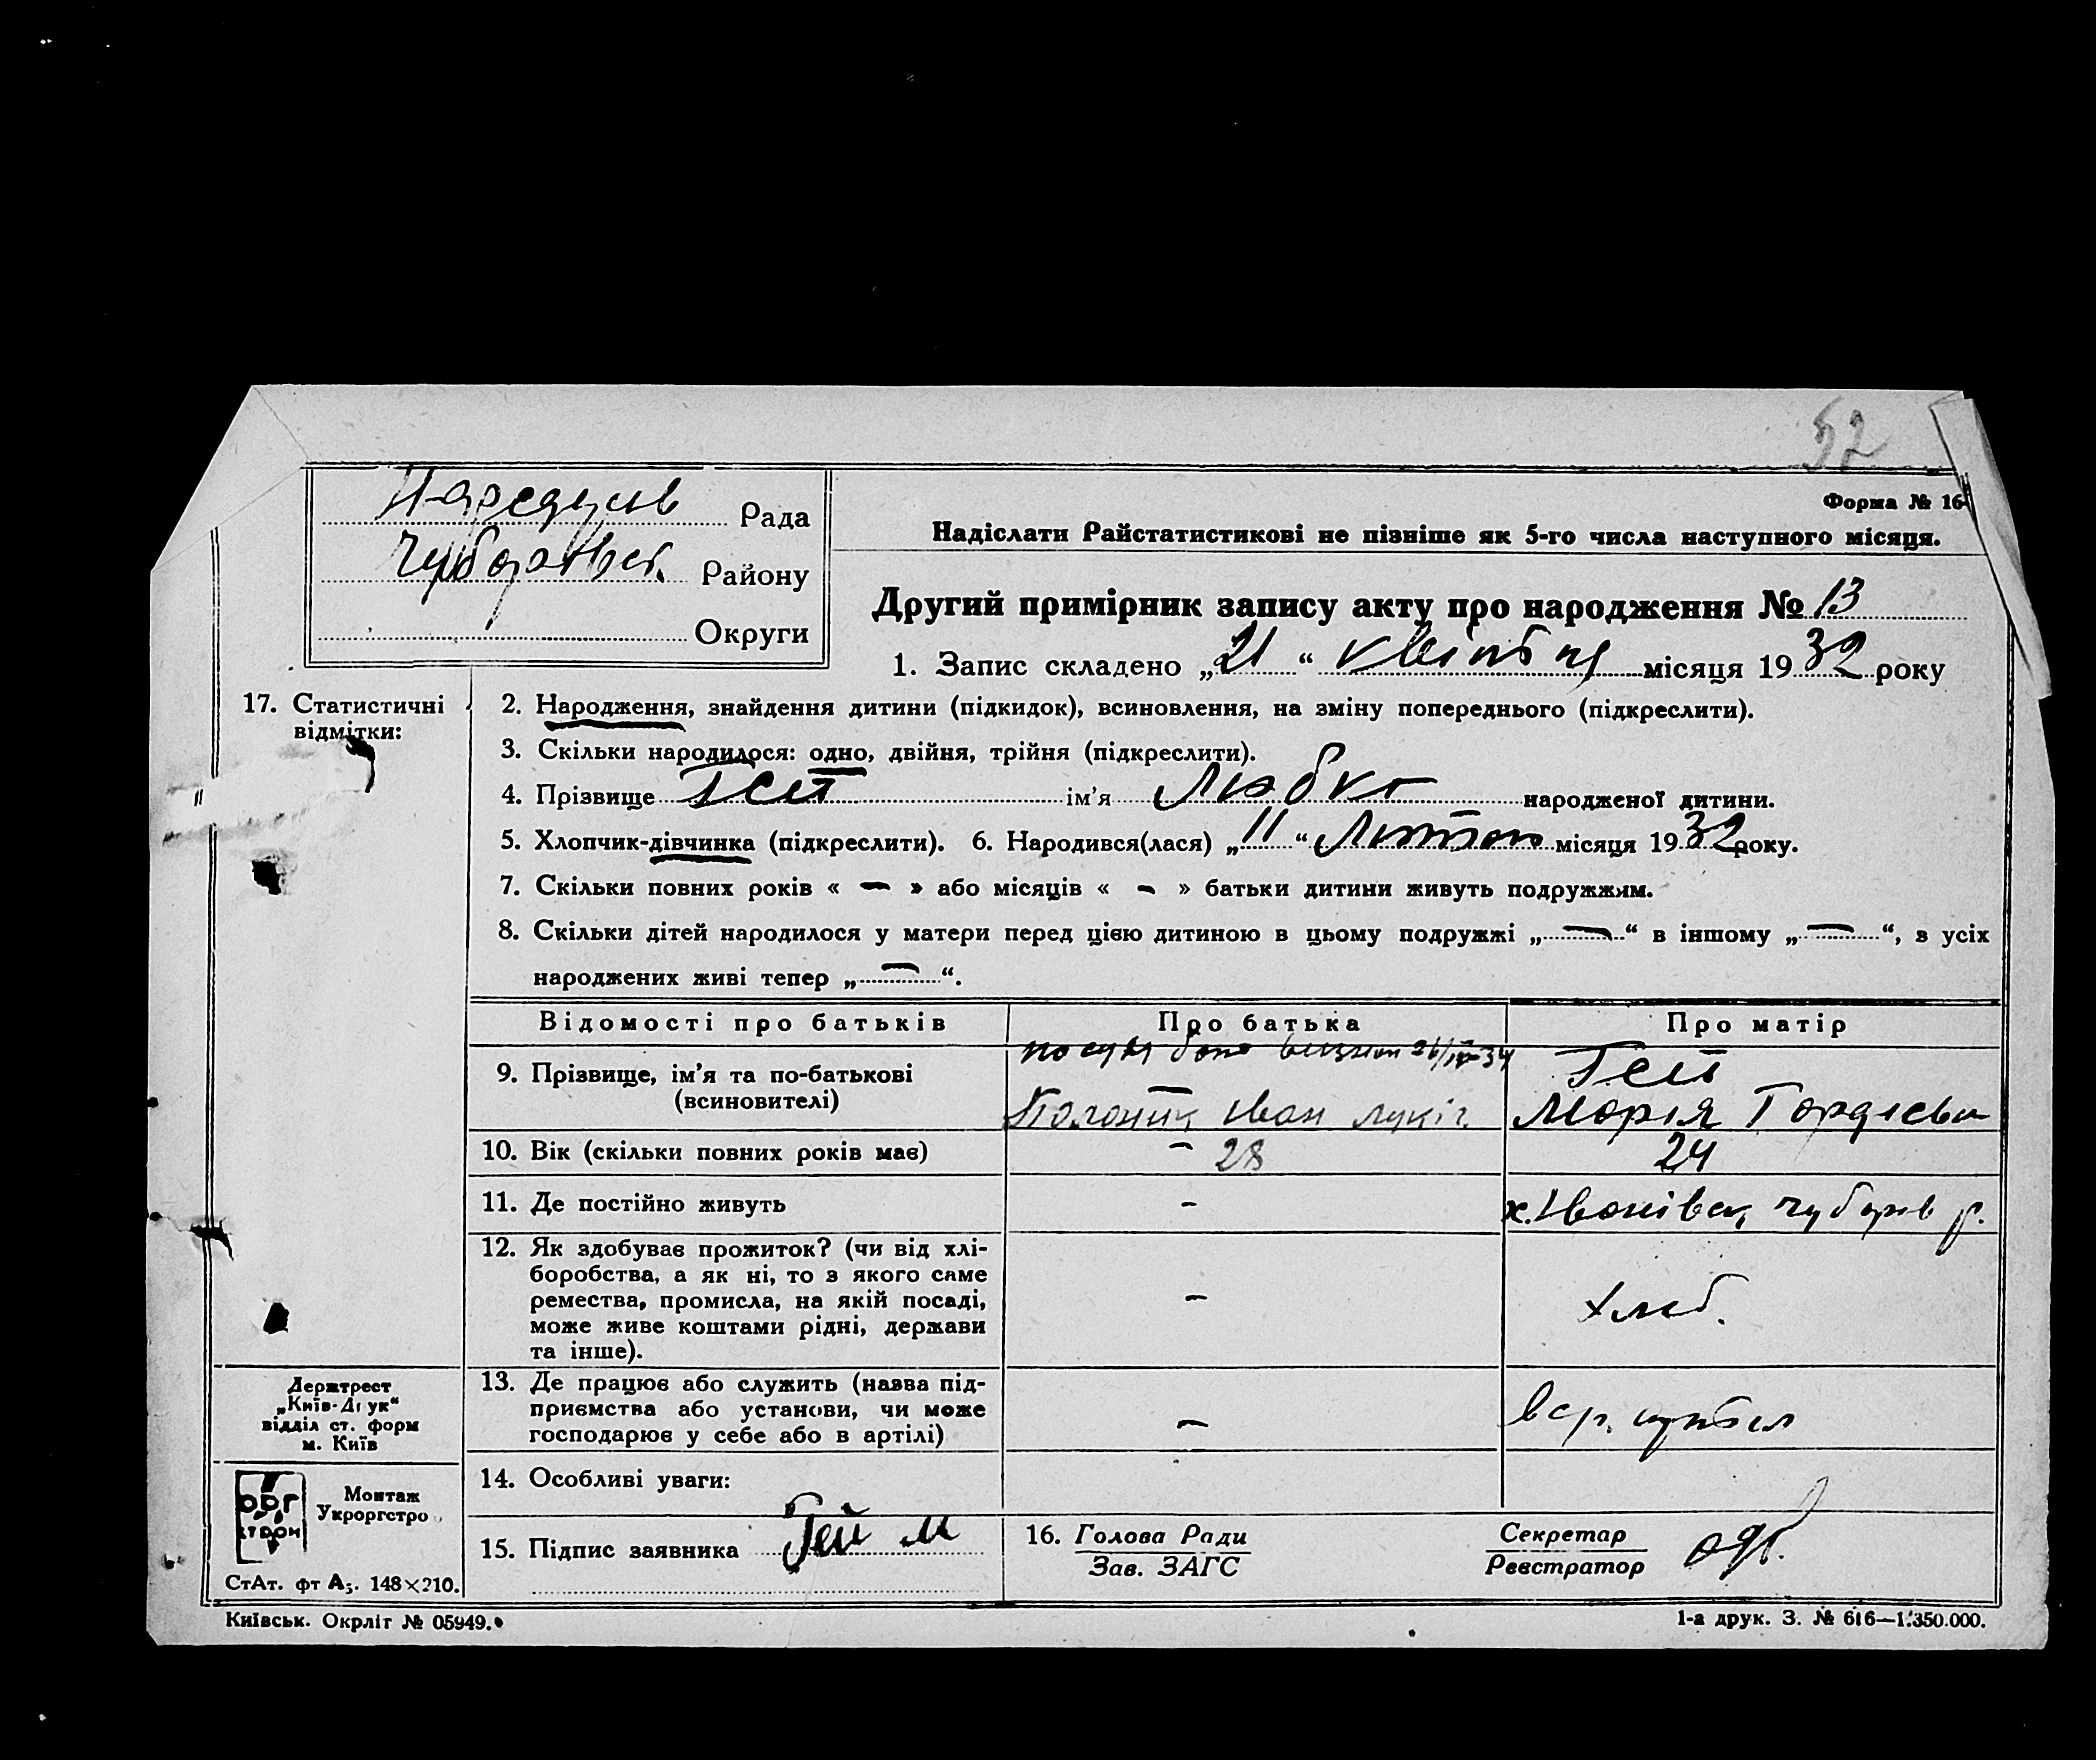 52
Рада
Району
Округи
Форма № 16
Надіслати Райстатистикові не пізніше як 5-го числа наступного місяця.
Другий примірник запису акту про народження № 13
1. Запис складено „21“ квітня місяця 1932 року
17. Статистичні відмітки:
2. Народження, знайдення дитини (підкидок), всиновлення, на зміну попереднього (підкреслити).
3. Скільки народилося: одно, двійня, трійня (підкреслити).
4. Прізвище ім’я народженої дитини.
5. Хлопчик-дівчинка (підкреслити). 6. Народився(лася) „11“ Лютого місяця 1932 року.
7. Скільки повних років « — » або місяців « - » батьки дитини живуть подружжям.
8. Скільки дітей народилося у матери перед цією дитиною в цьому подружжі „—“ в іншому „—“, з усіх
народжених живі тепер „—“.
Відомості про батьків
Про батька
Про матір
9. Прізвище, ім’я та по-батькові
(всиновителі)
Іван
Марія
10. Вік (скільки повних років має)
— 28
24
11. Де постійно живуть
-
12. Як здобуває прожиток? (чи від хлі-
боробства, а як ні, то з якого саме
ремества, промисла, на якій посаді,
може живе коштами рідні, держави
та інше).
-
хліб.
13. Де працює або служить (назва під-
приємства або установи, чи може
господарює у себе або в артілі)
-
14. Особливі уваги:
15. Підпис заявника Гей М
16. Голова Ради
Зав. ЗАГС
Секретар
Реєстратор
Держтрест
„Київ-Друк“
відділ ст. форм
м. Київ
ОРГ
СТРОМ
Монтаж
Укроргстро
СтАт. фт А₅. 148×210.
Київськ. Окрліт № 05949.
1-а друк. З. № 616—1.350.000.